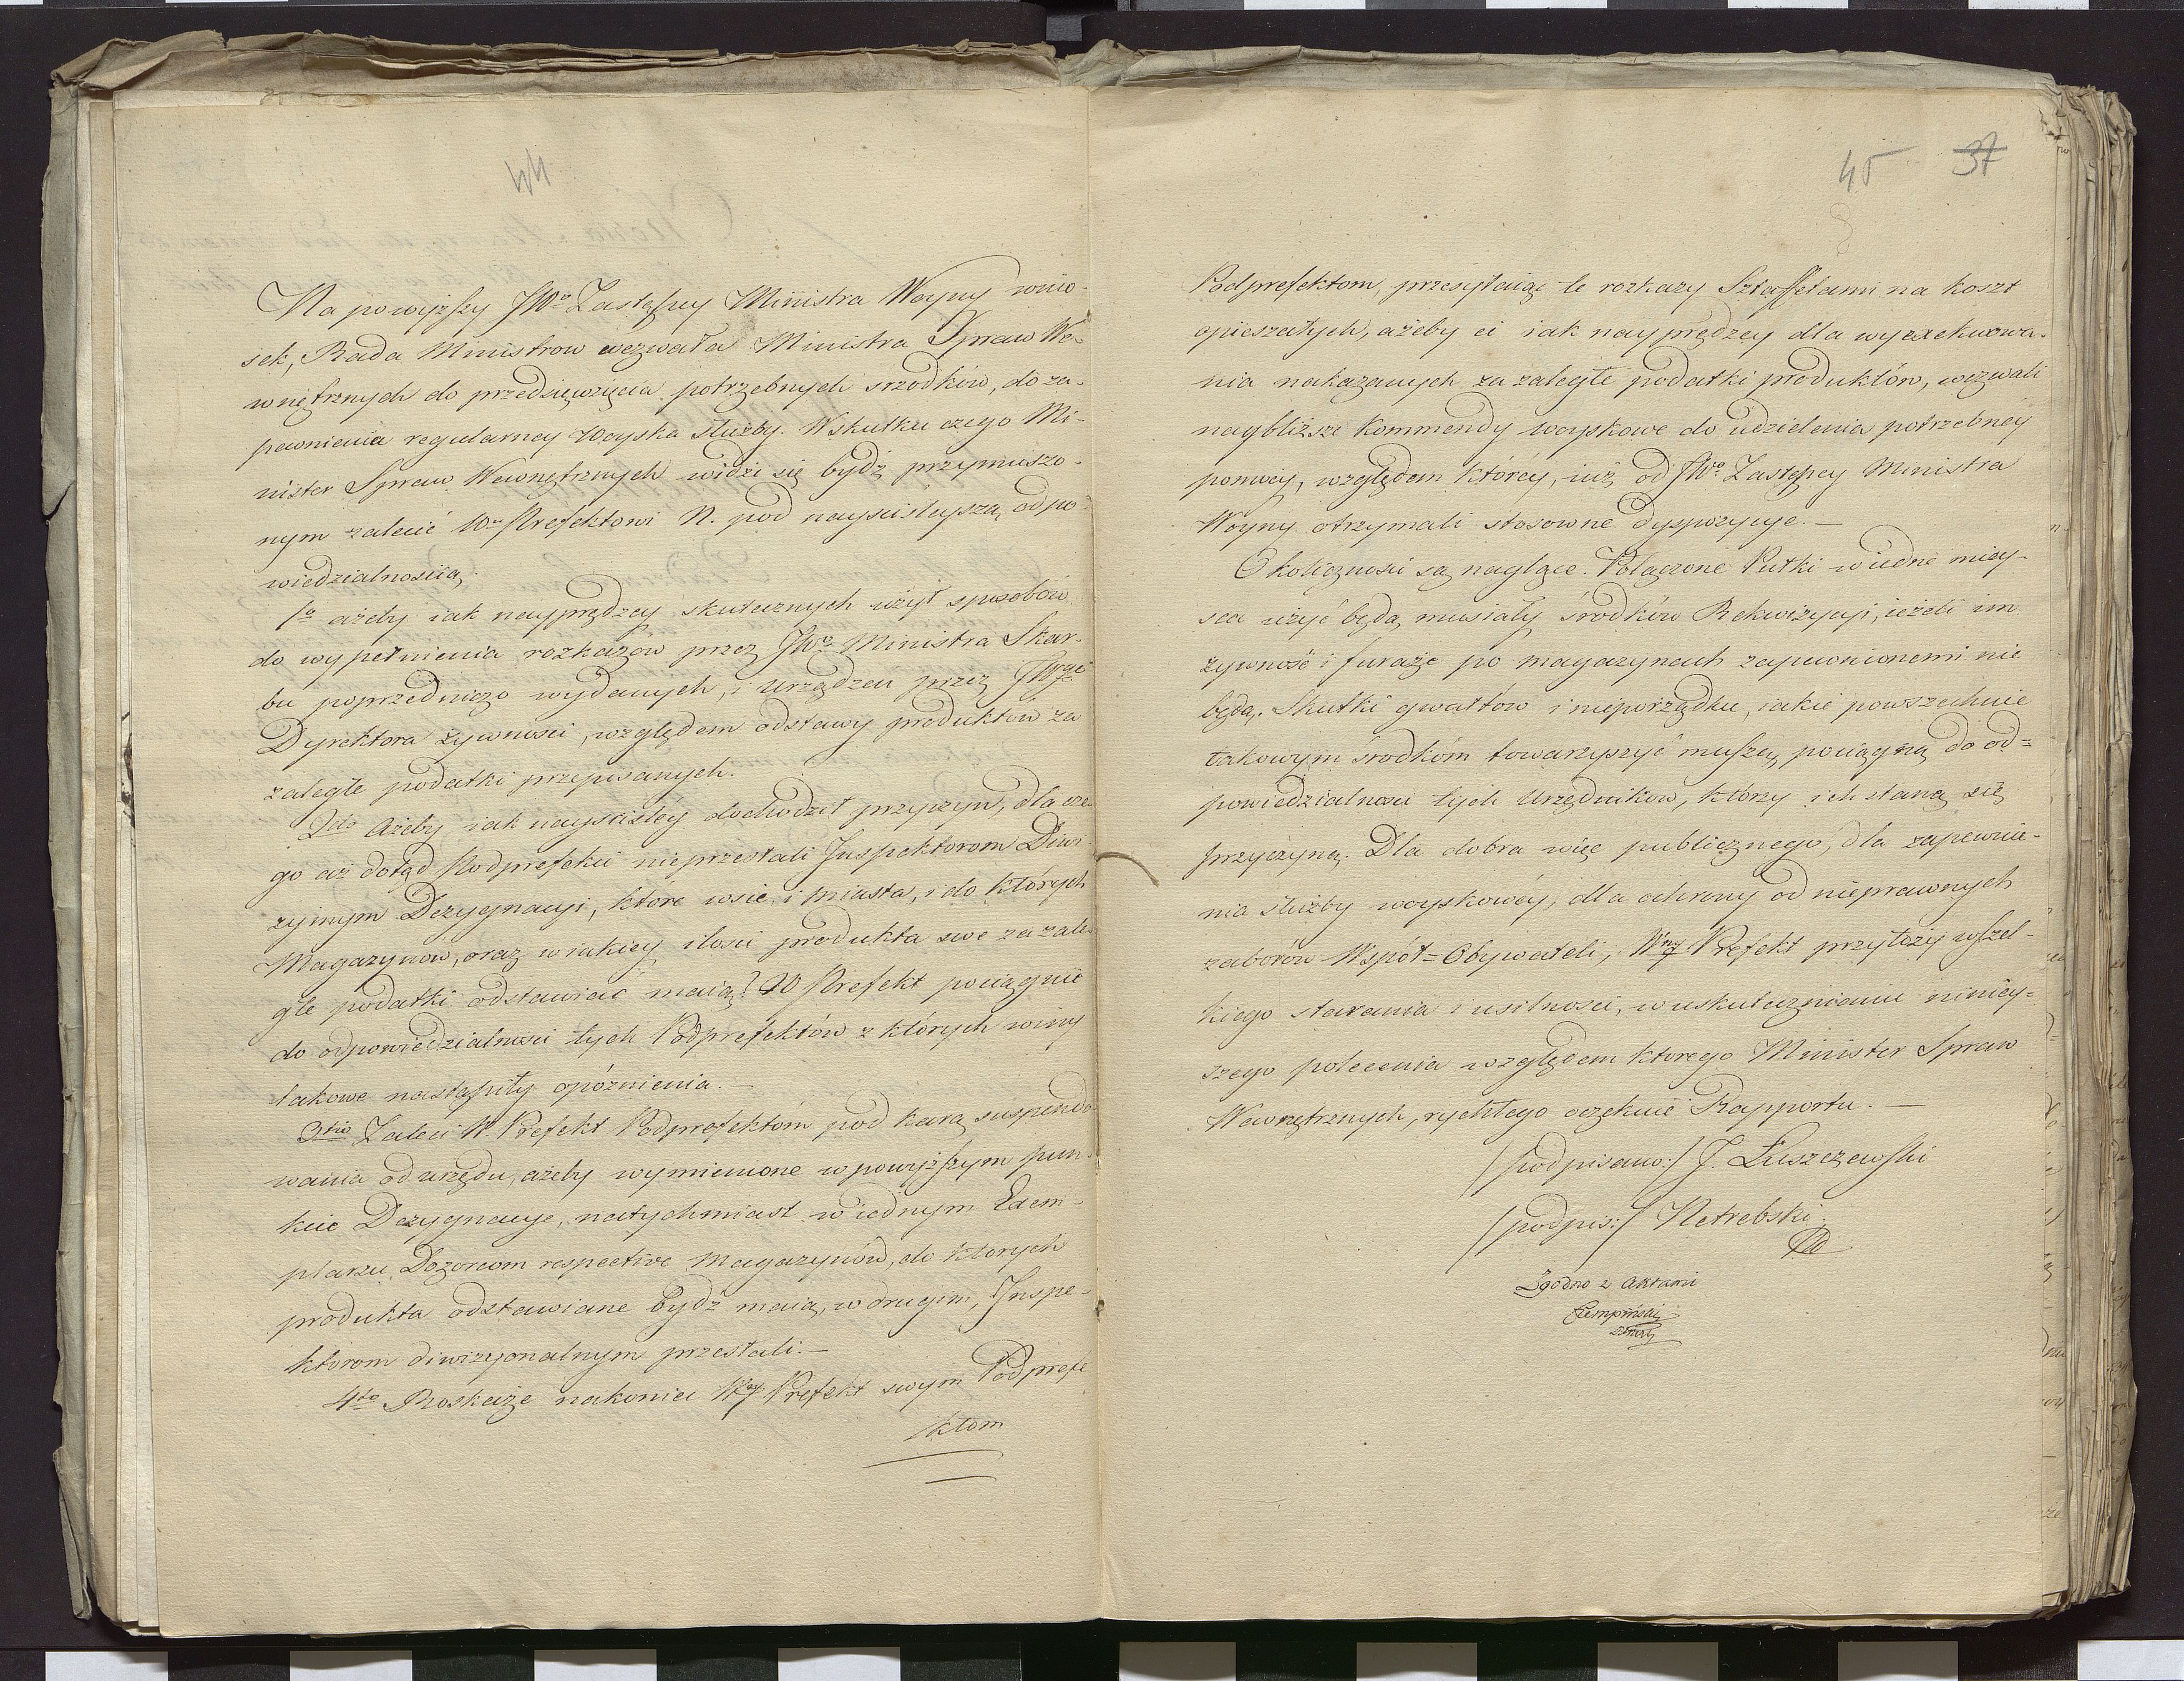 44
Na powyższy JWo Zastępcy Ministra Woyny wnio-
sek, Rada Ministrow wezwała Ministra Spraw We-
wnętrznych do przedsięwzięcia potrzebnych srzodków, do za-
pewnienia regularney Woyska służby. Wskutku czego Mi-
nister Spraw Wewnętrznych widzi się bydź przymuszo-
nym zalecić Wu Prefektowi N. pod nayściśleyszą odpo-
wiedzialnościią.
1o ażeby iak nayprędzey skutecznych użył sposobów
do wypełnienia rozkazow przez JWo Ministra Skar-
bu poprzedniczo wydanych, i urządzeń przez
Dyrektora żywności, względem odstawy produktów za
zaległe podatki przepisanych.
2do Ażeby iak nayściśley dochodził przyczyn, dla cze-
go aż dotąd Podprefekci nieprzesłali Inspektorom Diwi-
zyinym Dezygnacyi, które wsie, i miasta, i do których
Magazynów, oraz w iakiey ilości produkta swe za zale-
głe podatki odstawiać maią? W Prefekt pociągnie
do odpowiedzialności tych Podprefektów z których winy
takowe nastąpiły opóźnienia.—
3tio Zaleci W. Prefekt Podprefektóm pod karą suspendo-
wania od urzędu, ażeby wymienione w powyższym pun-
kcie Dezygnacye, natychmiast w iednym Exem-
plarzu Dozorcom respective Magazynów, do ktorych
produkta odstawiane bydź maią, w drugim, Inspe-
ktorom diwizyonalnym przesłali.—
4to Roskaże nakoniec Wny Prefekt swym Podprefe
ktom
45 37
Podprefektom, przesyłaiąc te rozkazy Sztaffetami na koszt
opieszałych, ażeby ci iak nayprędzey dla wyexekwowa-
nia nakazanych za zaległe podatki produktów, wezwali
naybliższe Kommendy woyskowe do udzielenia potrzebnéy
pomocy, względem któréy, iuż od JWo Zastępcy Ministra
Woyny otrzymali stosowne dyspozycye.—
Okoliczności są naglące. Połączone Pułki w iedne miey-
sca użyć będą musiały środków Rekwizycyi, ieżeli im
żywność i furaże po magazynach zapewnionemi nie
będą. Skutki gwałtów i nieporządku, iakie powszechnie
takowym środkóm towarzyszyć muszą, pociągną do od=
powiedzialności tych Urzędników, którzy ich staną się
przyczyną. Dla dobra więc publicznego, dla zapewnie-
nia służby woyskowéy, dla ochrony od nieprawnych
zaborów Wspót=Obywateli, Wny Prefekt przyłoży wszel-
kiego starania i usilności, w uskutecznianiu niniéy=
szego polecenia względem ktorego Minister Spraw
Wewnętrznych, rychłego oczekuie Rapportu.—
/podpisano:/ J. Łuszczewski
/podpis:/ Netrebski.
Zgodno z Aktami